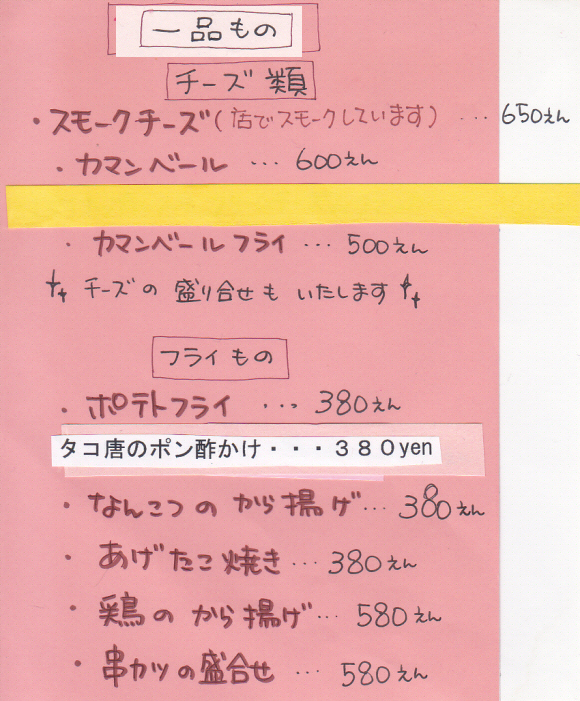 一品もの
チーズ類
・スモークチーズ(店でスモークしています) … 650えん
・カマンベール … 600えん
・カマンベールフライ … 500えん
チーズの盛り合せもいたします
フライもの
・ポテトフライ … 380えん
タコ唐のポン酢かけ・・・３８０yen
・なんこつのから揚げ… 380えん
・あげたこ焼き… 380えん
・鶏のから揚げ… 580えん
・串カツの盛合せ … 580えん